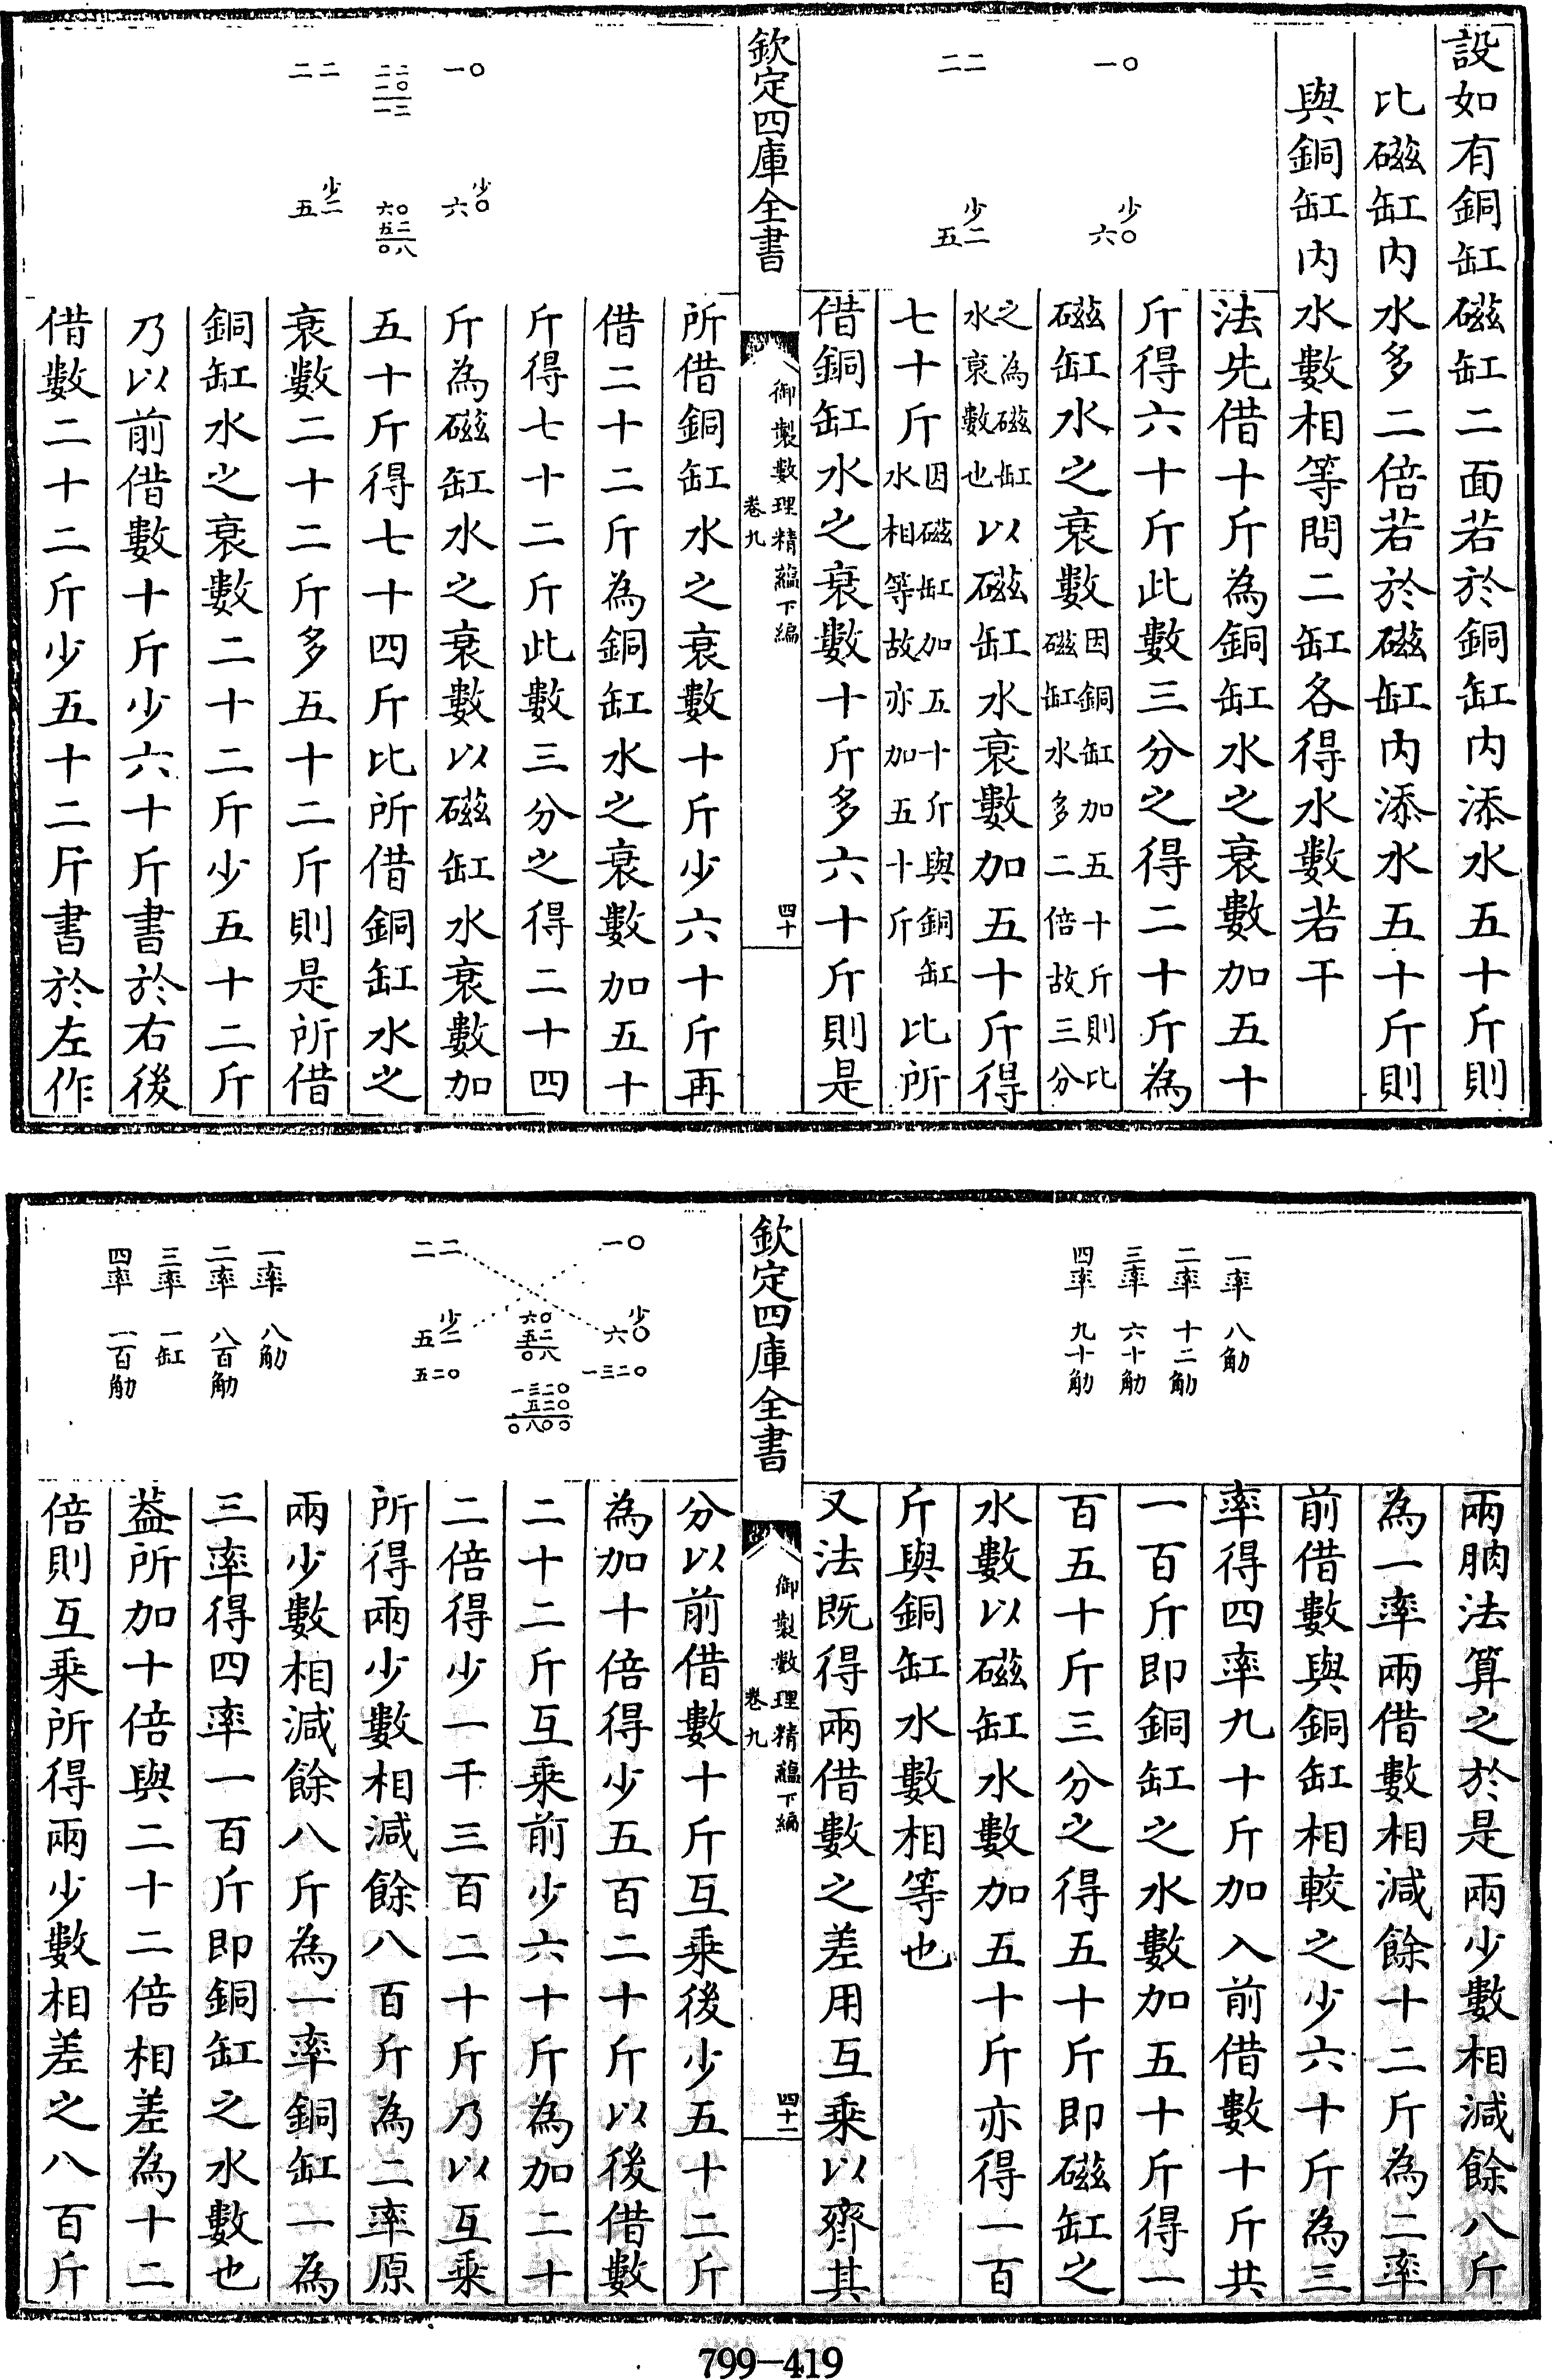 設如有銅缸磁缸二面若於銅缸內添水五十斤則
比磁缸內水多二倍若於磁缸內添水五十斤則
與銅缸內水數相等問二缸各得水數若干
一〇
少〇
六
二二
少二
五
法先借十斤為銅缸水之衰數加五十
斤得六十斤此數三分之得二十斤為
磁缸水之衰數因銅缸加五十斤則比磁缸水多二倍故三分
之為磁缸水衰數也以磁缸水衰數加五十斤得
七十斤因磁缸加五十斤與銅缸水相等故亦加五十斤比所
借銅缸水之衰數十斤多六十斤則是
欽定四庫全書
御製數理精蘊下編
卷九
四十
一〇
少〇
六
二二
一〇
一二
六〇
五二
〇八
二二
少二
五
所借銅缸水之衰數十斤少六十斤再
借二十二斤為銅缸水之衰數加五十
斤得七十二斤此數三分之得二十四
斤為磁缸水之衰數以磁缸水衰數加
五十斤得七十四斤比所借銅缸水之
衰數二十二斤多五十二斤則是所借
銅缸水之衰數二十二斤少五十二斤
乃以前借數十斤少六十斤書於右後
借數二十二斤少五十二斤書於左作
一率 八觔
二率 十二觔
三率 六十觔
四率 九十觔
兩朒法算之於是兩少數相減餘八斤
為一率兩借數相減餘十二斤為二率
前借數與銅缸相較之少六十斤為三
率得四率九十斤加入前借數十斤共
一百斤即銅缸之水數加五十斤得一
百五十斤三分之得五十斤即磁缸之
水數以磁缸水數加五十斤亦得一百
斤與銅缸水數相等也
又法既得兩借數之差用互乘以齊其
欽定四庫全書
御製數理精蘊下編
卷九
四十一
一〇
少〇
六
一三二〇
六〇
五二
〇八
一三二〇
五二〇
〇八〇〇
二二
少二
五
五二〇
一率 八觔
二率 八百觔
三率 一缸
四率 一百觔
分以前借數十斤互乘後少五十二斤
為加十倍得少五百二十斤以後借數
二十二斤互乘前少六十斤為加二十
二倍得少一千三百二十斤乃以互乘
所得兩少數相減餘八百斤為二率原
兩少數相減餘八斤為一率銅缸一為
三率得四率一百斤即銅缸之水數也
葢所加十倍與二十二倍相差為十二
倍則互乘所得兩少數相差之八百斤
799-419